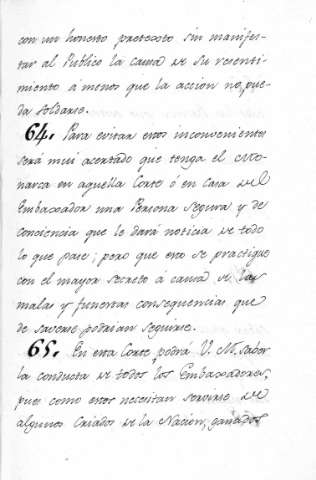 con un honesto pretexto sin manifes-
tar al Publico la causa de su resenti-
miento á menos que la accion no pue-
da soldarse.
64. Para evitar estos inconvenientes
será mui acertado que tenga el Mo-
narca en aquella Corte ó en Casa del
Embaxador una Persona segura y de
conciencia que le dará noticia de todo
lo que pase; pero que esto se practique
con el mayor secreto á causa de las
malas y funestas consequencias que
de saverse podrian seguirse.
65. En esta Corte podrá V. M. saber
la conducta de todos los Embaxadores,
pues como estos necesitan servirse de
algunos Criados de la Nacion, ganados